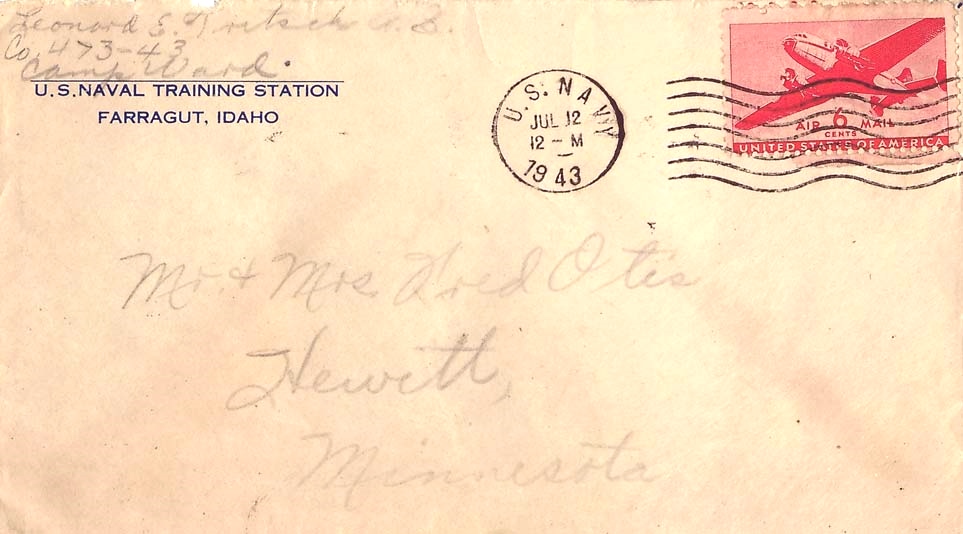 Leonard E. Fritsch A. S.
Co. 473-43
Camp Ward.
U.S. NAVAL TRAINING STATION
FARRAGUT, IDAHO
U.S. NAVY
JUL 12
12 - M
1943
AIR 6 MAIL
CENTS
UNITED STATES OF AMERICA
Mr. & Mrs. Fred Otis
Hewitt,
Minnesota